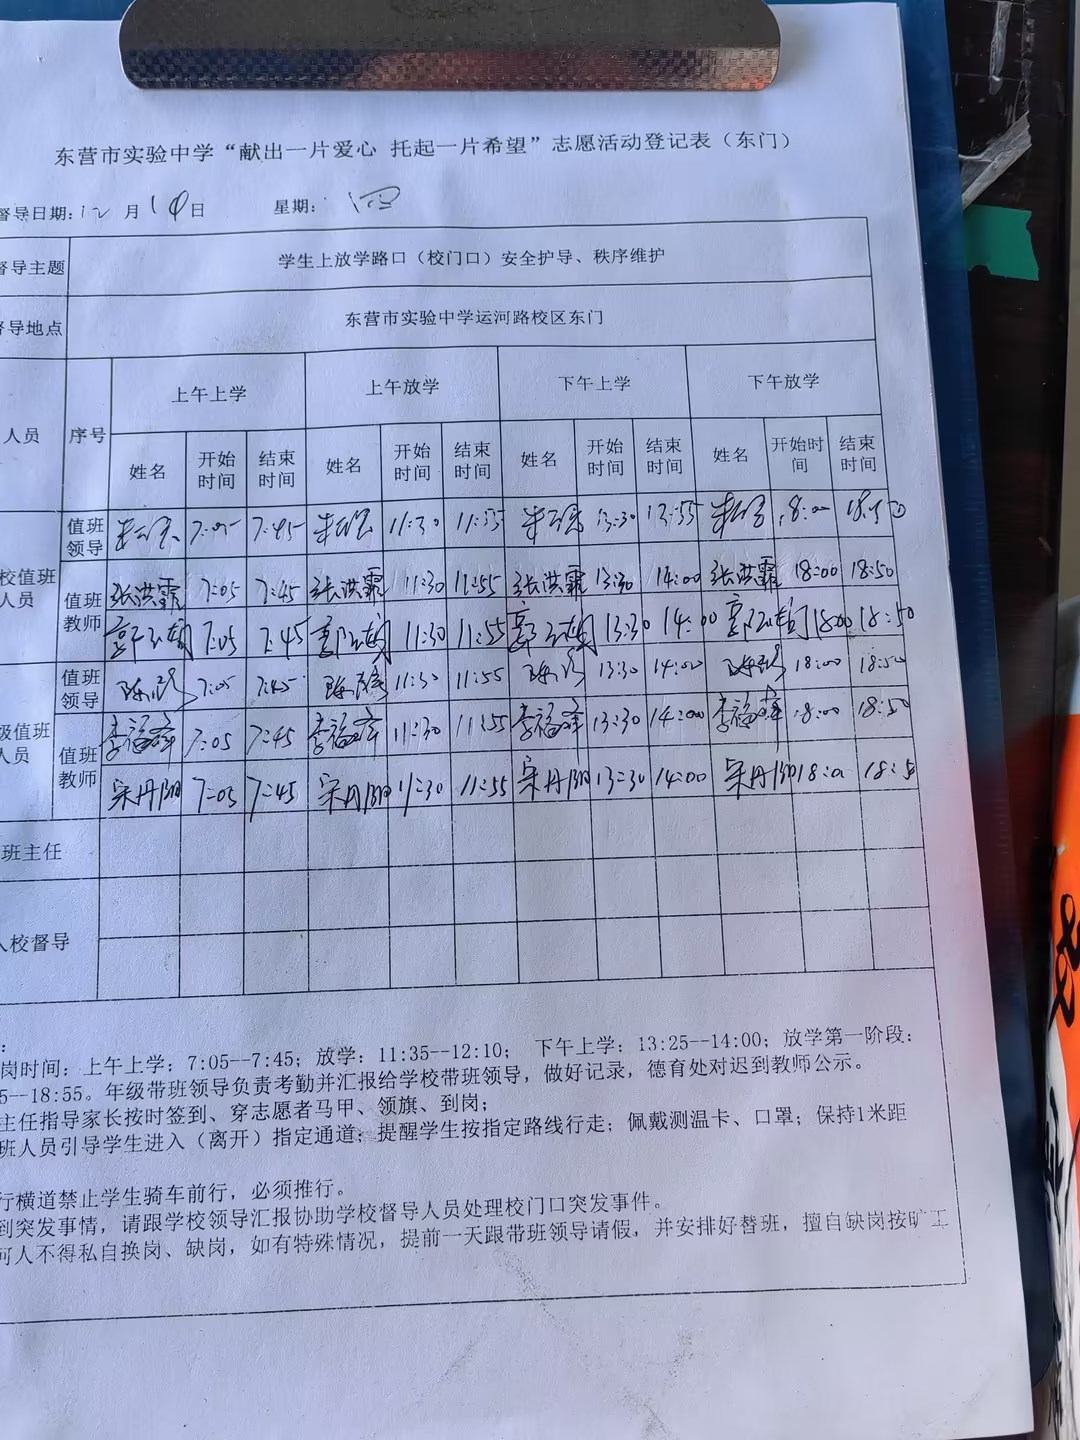 东营市实验中学“献出一片爱心 托起一片希望”志愿活动登记表（东门）
督导日期：12月10日 星期：四
督导主题 学生上放学路口（校门口）安全护导、秩序维护
督导地点 东营市实验中学运河路校区东门
人员 序号 上午上学 上午放学 下午上学 下午放学
姓名 开始时间 结束时间 姓名 开始时间 结束时间 姓名 开始时间 结束时间 姓名 开始时间 结束时间
校值班人员 值班领导 7:05 7:45 11:30 11:55 13:30 13:55 18:00 18:50
值班教师 张洪霏 7:05 7:45 张洪霏 11:30 11:55 张洪霏 13:30 14:00 张洪霏 18:00 18:50
7:05 7:45 11:30 11:55 13:30 14:00 18:00 18:50
级值班人员 值班领导 7:05 7:45 11:30 11:55 13:30 14:00 18:00 18:50
值班教师 李福萍 7:05 7:45 李福萍 11:30 11:55 李福萍 13:30 14:00 李福萍 18:00 18:50
宋丹阳 7:05 7:45 宋丹阳 11:30 11:55 宋丹阳 13:30 14:00 宋丹阳 18:0 18:5
班主任
人校督导
：
岗时间：上午上学：7:05--7:45；放学：11:35--12:10； 下午上学：13:25--14:00；放学第一阶段：
5--18:55。年级带班领导负责考勤并汇报给学校带班领导，做好记录，德育处对迟到教师公示。
主任指导家长按时签到、穿志愿者马甲、领旗、到岗；
班人员引导学生进入（离开）指定通道；提醒学生按指定路线行走；佩戴测温卡、口罩；保持1米距
行横道禁止学生骑车前行，必须推行。
到突发事情，请跟学校领导汇报协助学校督导人员处理校门口突发事件。
何人不得私自换岗、缺岗，如有特殊情况，提前一天跟带班领导请假，并安排好替班，擅自缺岗按旷工